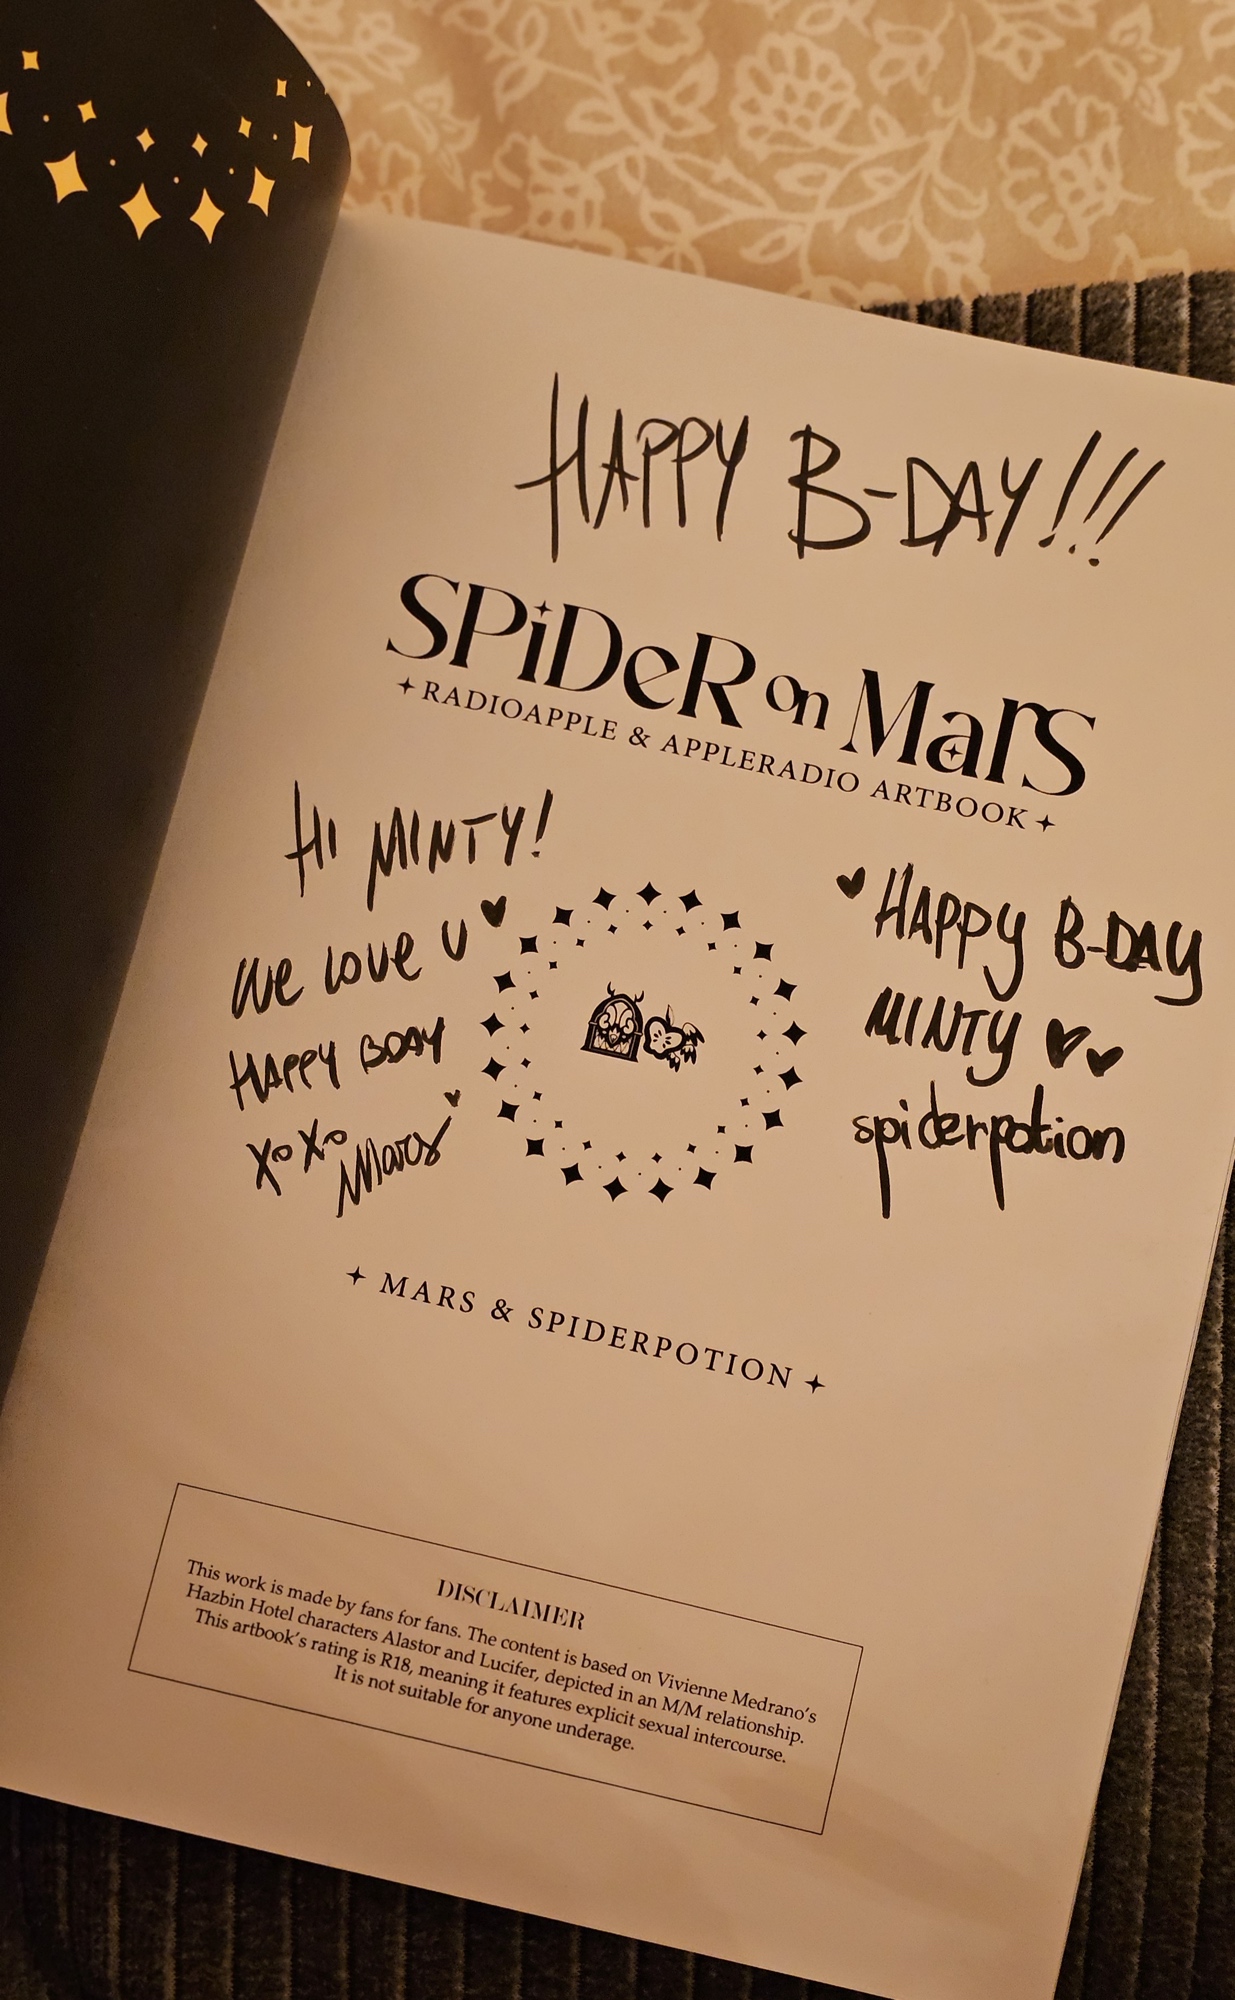 HAPPY B-DAY!!!
SPiDeR on MarS
RADIOAPPLE & APPLERADIO ARTBOOK
HI MINTY!
We love U
HAPPY BDAY
XoXo
Mars
HAPPY B-DAY
MINTY
spiderpotion
MARS & SPIDERPOTION
DISCLAIMER
This work is made by fans for fans. The content is based on Vivienne Medrano's
Hazbin Hotel characters Alastor and Lucifer, depicted in an M/M relationship.
This artbook's rating is R18, meaning it features explicit sexual intercourse.
It is not suitable for anyone underage.